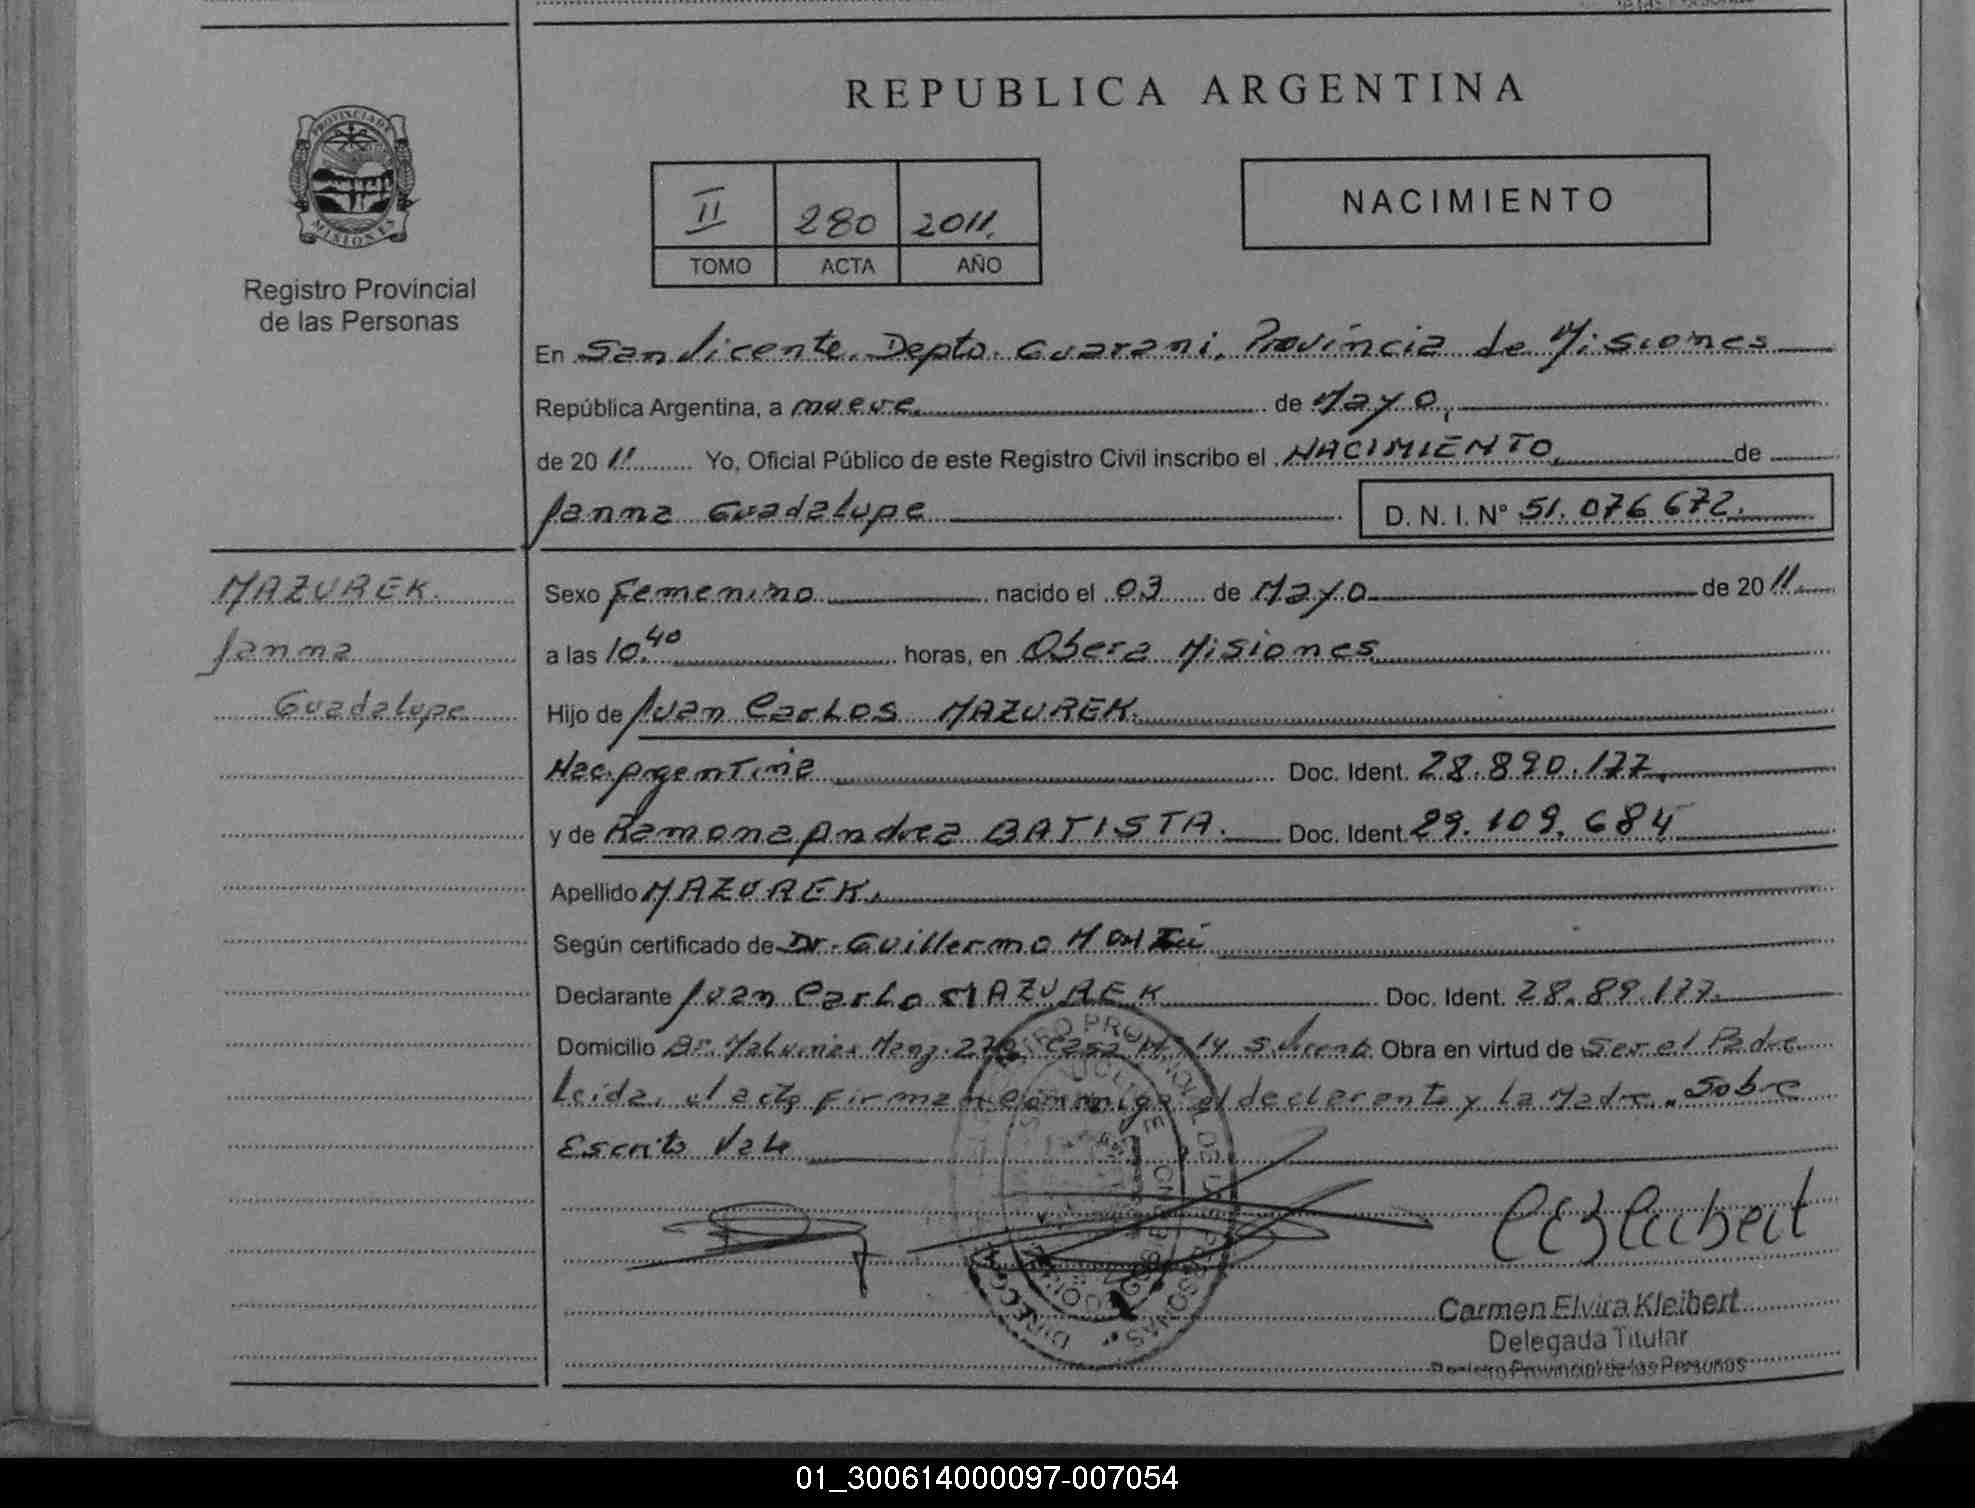 REPUBLICA ARGENTINA
PROVINCIA DE MISIONES
Registro Provincial
de las Personas
II 280 2011.
TOMO ACTA AÑO
NACIMIENTO
En San Vicente. Depto. Guarani. Provincia de Misiones
República Argentina, a nueve de Mayo,
de 2011 Yo, Oficial Público de este Registro Civil inscribo el NACIMIENTO de
Janna Guadalupe D. N. I. N° 51.076 672.
MAZUREK.
Janna
Guadalupe
Sexo Femenino nacido el 03 de Mayo de 2011.
a las 10.40 horas, en Obera Misiones
Hijo de Juan Carlos MAZUREK.
Nac. Argentina Doc. Ident. 28.890.177.
y de Ramona Andrea BATISTA. Doc. Ident. 29.109.684
Apellido MAZUREK.
Según certificado de Dr. Guillermo
Declarante Juan Carlos MAZUREK Doc. Ident. 28.89.177.
Domicilio Manz. Casa 14 S. Vicente Obra en virtud de Ser el Padre
Leida, el acta firman conmigo el declarante y La Madre. Sobre
Escrito Vale
Carmen Elvira Kleibert
Delegada Titular
Registro Provincial de las Personas
01_300614000097-007054